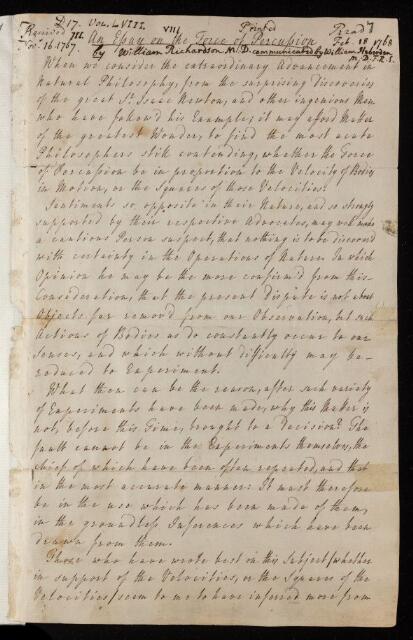 L17. Vol. LVIII. VIII Printed
Received VII Read
Nov. 16. 1767. An Essay on the Force of Percussion Feb. 18 1768
by William Richardson M.D. communicated by William Heberden
M.D. F.R.S.
When we consider the extraordinary Advancement in
Natural Philosophy, from the surprising Discoveries
of the great Sr. Isaac Newton, and other ingenious Men
who have follow'd his Examples, it may afford Matter
of the greatest Wonder, to find the most acute
Philosophers still contending, whether the Force
of Percussion be in proportion to the Velocity of Bodies
in Motion, or the Squares of those Velocities.
Sentiments so opposite in their Nature, and so strongly
supported by their respective Advocates, may well make
a cautious Person suspect, that nothing is to be discover'd
with certainty in the Operations of Nature. In which
Opinion he may be the more confirm'd from this
Consideration, that the present Dispute is not about
Objects far remov'd from our Observation, but such
Actions of Bodies as do constantly occur to our
Senses, and which without difficulty may be
reduced to Experiment.
What then can be the reason, after such variety
of Experiments have been made, why this Matter is
not, before this Time, brought to a Decision? The
fault cannot be in the Experiments themselves, the
chief of which have been often repeated, and that
in the most accurate manner: It must therefore
be in the use which has been made of them,
in the groundless Inferences which have been
drawn from them.
Those who have wrote best on this Subject (whether
in support of the Velocities, or the Squares of the
Velocities) seem to me to have inferred more from